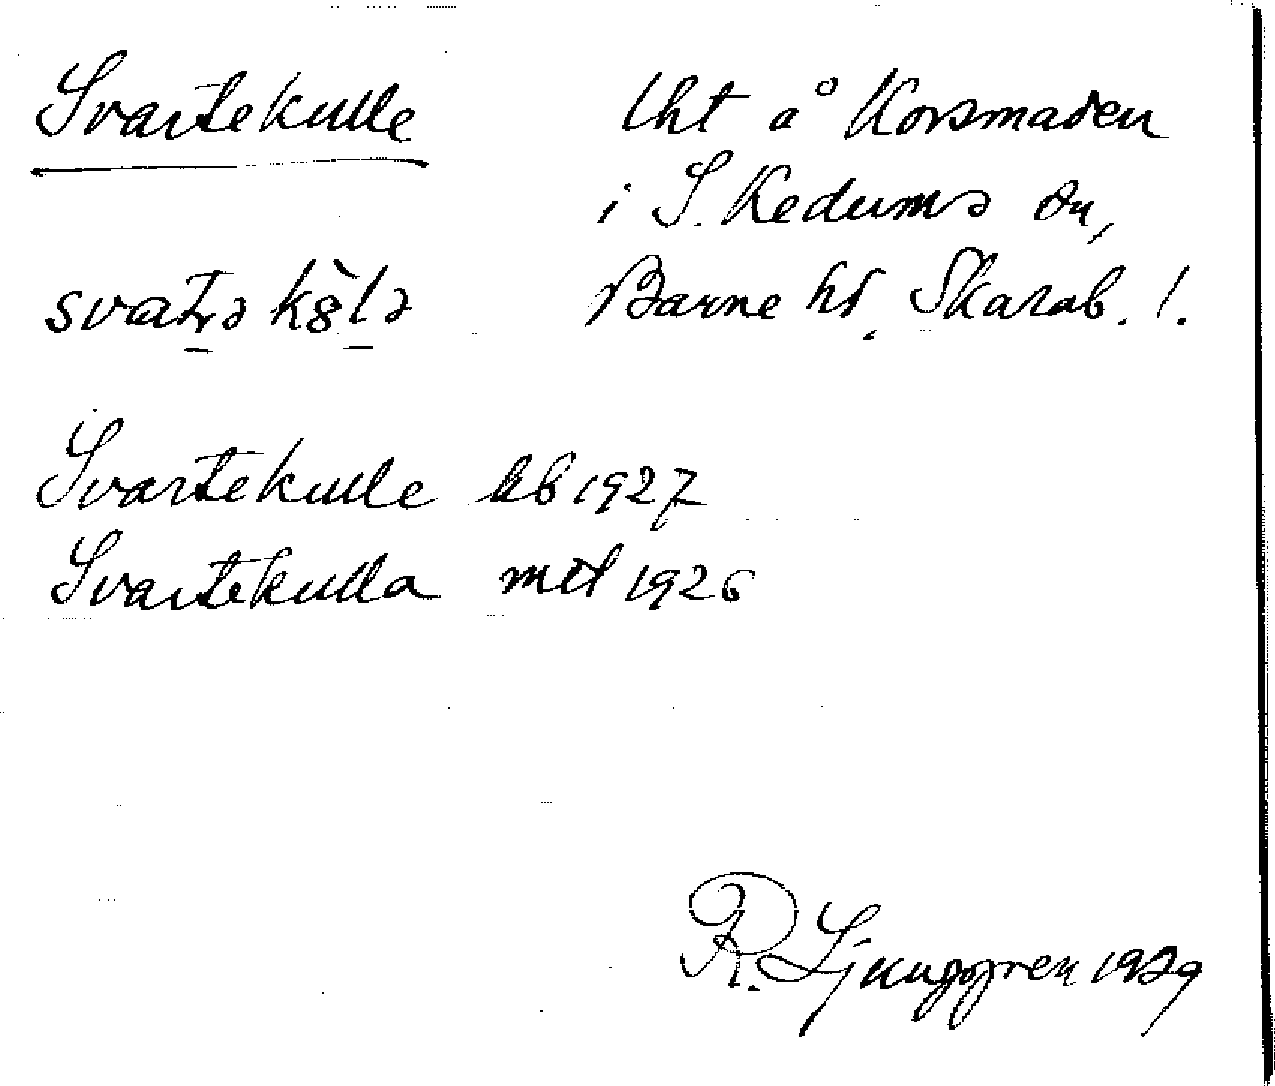 Svartekulle
lht å Korsmaden
i S. Kedums sn,
Barne hd. Skarab. l.
Svartekulle kb 1927
Svartekulla mtl 1926
R. Ljunggren 1929